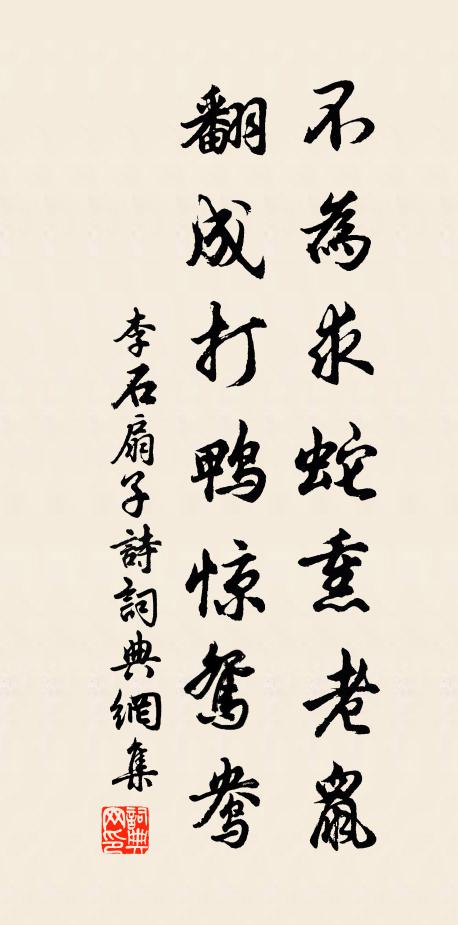 不為求蛇熏老鼠
翻成打鴨惊鴛鴦
李石扇子詩詞典網集
詞典网印